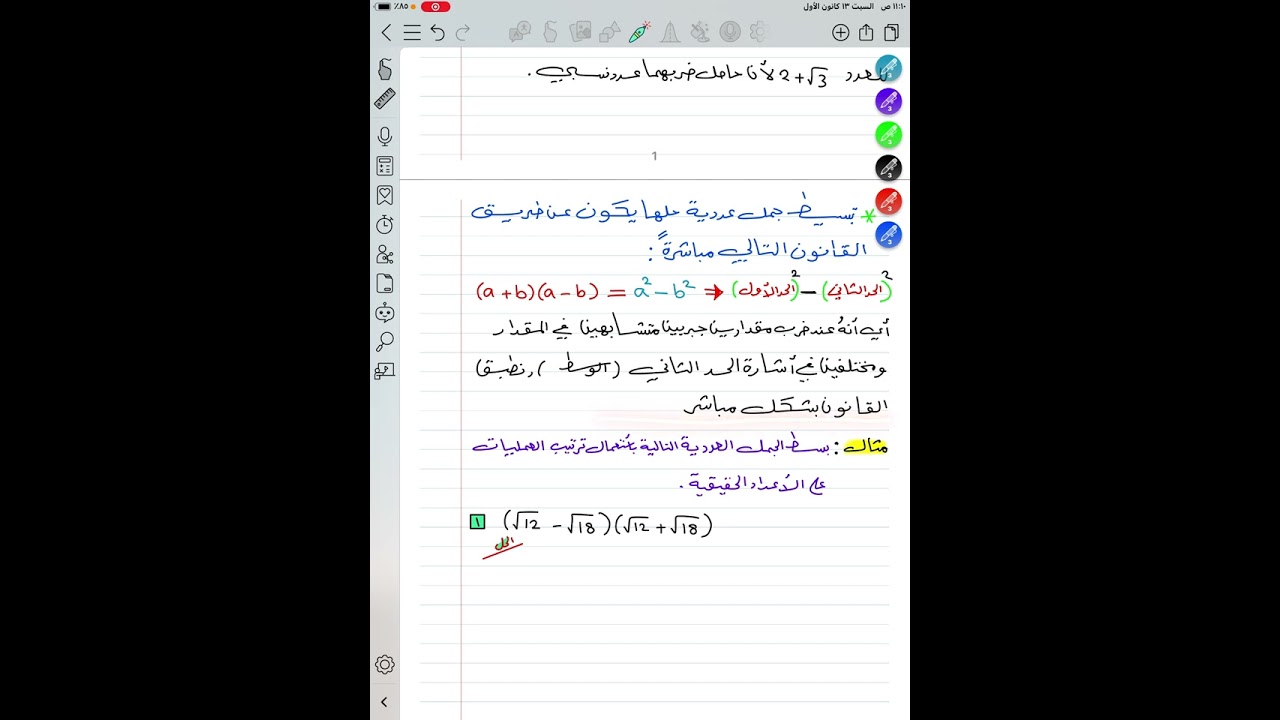 ١١:١٠ ص السبت ١٣ كانون الأول
٨٥٪
للعدد 2+√3 لأن حاصل ضربهما عدد نسبي.
1
* تبسيط جمل عددية حلها يكون عن طريق
القانون التالي مباشرةً:
(a+b)(a-b) = a²-b² → (الحد الأول)² - (الحد الثاني)²
أي أنهُ عند ضرب مقدارين جبريين متشابهين في المقدار
ومختلفين في أشارة الحد الثاني (الوسط), نطبق
القانون بشكل مباشر
مثال: بسط الجمل العددية التالية بأستعمال ترتيب العمليات
على الأعداد الحقيقية.
١ (√12 - √18)(√12 + √18)
الحل
3
3
3
3
3
3